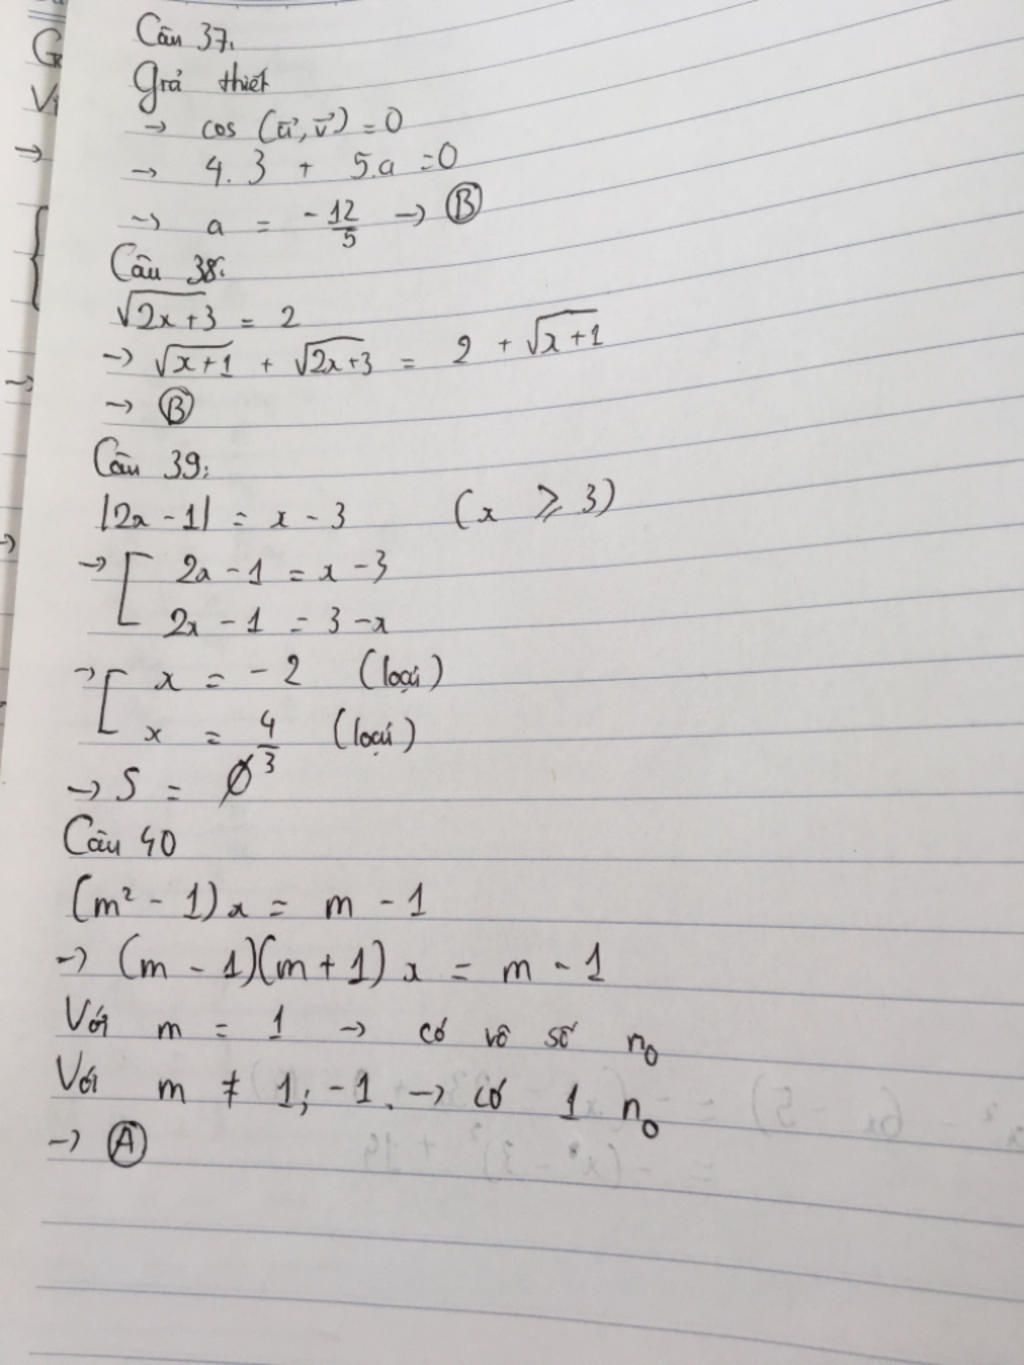 Câu 37.
Giả thiết
→ cos (u⃗, v⃗) = 0
→ 4.3 + 5.a = 0
→ a = -12/5 → Ⓑ
Câu 38:
√(2x+3) = 2
→ √(x+1) + √(2x+3) = 2 + √(x+1)
→ Ⓑ
Câu 39:
|2x - 1| = x - 3 (x ⩾ 3)
→ [ 2x - 1 = x - 3
2x - 1 = 3 - x
→ [ x = - 2 (loại)
x = 4/3 (loại)
→ S = ∅
Câu 40
(m² - 1)x = m - 1
→ (m - 1)(m + 1) x = m - 1
Với m = 1 → có vô số n₀
Với m ≠ 1; -1. → có 1 n₀
→ Ⓐ